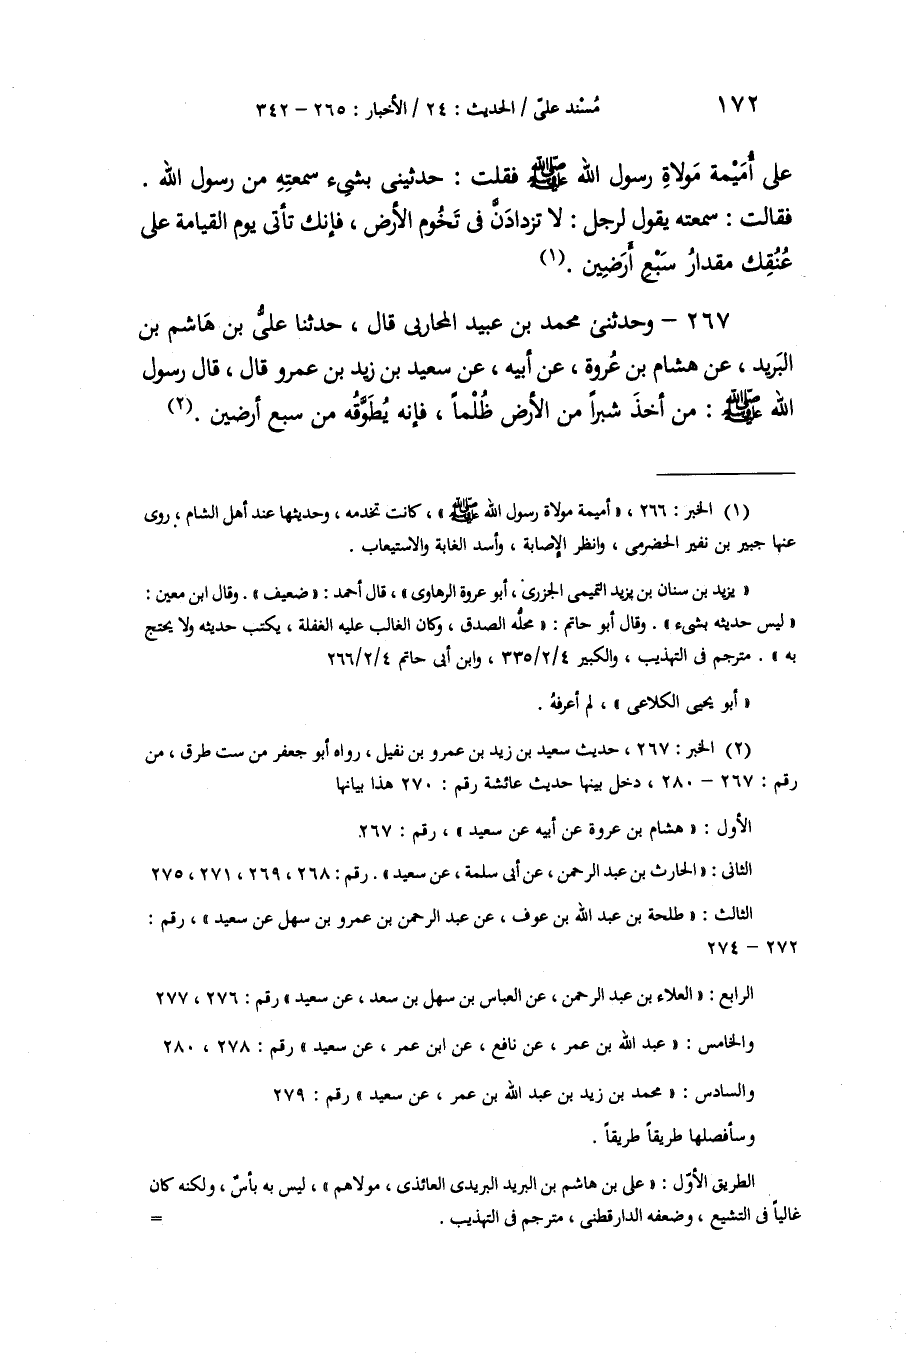 ١٧٢ مُسْند علىّ / الحديث : ٢٤ / الأخبار : ٢٦٥ – ٣٤٢
على أُمَيْمة مَولاةِ رسول الله ﷺ فقلت : حدثينى بشىء سمعتِهِ من رسول الله .
فقالت : سمعته يقول لرجل : لا تزدادَنَّ فى تَخُوم الأرض ، فإنك تأتى يوم القيامة على
عُنُقِك مقدارُ سَبْعِ أَرَضِين .(١)
٢٦٧ – وحدثنى محمد بن عبيد المحاربى قال ، حدثنا علىُّ بن هَاشم بن
البَريد ، عن هشام بن عُروة ، عن أبيه ، عن سعيد بن زيد بن عمرو قال ، قال رسول
الله ﷺ : من أخذَ شبراً من الأرض ظُلْماً ، فإنه يُطَوَّقُه من سبع أرضين .(٢)
(١) الخبر : ٢٦٦ ، « أميمة مولاة رسول الله ﷺ » ، كانت تخدمه ، وحديثها عند أهل الشام ، روى
عنها جبير بن نفير الحضرمى ، وانظر الإصابة ، وأسد الغابة والاستيعاب .
« يزيد بن سنان بن يزيد التميمى الجزرى ، أبو عروة الرهاوى » ، قال أحمد : « ضعيف » . وقال ابن معين :
« ليس حديثه بشىء » . وقال أبو حاتم : « محلُّه الصدق ، وكان الغالب عليه الغفلة ، يكتب حديثه ولا يحتج
به » . مترجم فى التهذيب ، والكبير ٣٣٥/٢/٤ ، وابن أبى حاتم ٢٦٦/٢/٤
« أبو يحيى الكلاعى » ، لم أعرفهُ .
(٢) الخبر : ٢٦٧ ، حديث سعيد بن زيد بن عمرو بن نفيل ، رواه أبو جعفر من ست طرق ، من
رقم : ٢٦٧ – ٢٨٠ ، دخل بينها حديث عائشة رقم : ٢٧٠ هذا بيانها
الأول : « هشام بن عروة عن أبيه عن سعيد » ، رقم : ٢٦٧.
الثانى : « الحارث بن عبد الرحمن ، عن أبى سلمة ، عن سعيد » . رقم : ٢٦٨ ، ٢٦٩ ، ٢٧١ ، ٢٧٥
الثالث : « طلحة بن عبد الله بن عوف ، عن عبد الرحمن بن عمرو بن سهل عن سعيد » ، رقم :
٢٧٢ – ٢٧٤
الرابع : « العلاء بن عبد الرحمن ، عن العباس بن سهل بن سعد ، عن سعيد » رقم : ٢٧٦ ، ٢٧٧
والخامس : « عبد الله بن عمر ، عن نافع ، عن ابن عمر ، عن سعيد » رقم : ٢٧٨ ، ٢٨٠
والسادس : « محمد بن زيد بن عبد الله بن عمر ، عن سعيد » رقم : ٢٧٩
وسأفصلها طريقاً طريقاً .
الطريق الأوّل : « على بن هاشم بن البريد البريدى العائذى ، مولاهم » ، ليس به بأسٌ ، ولكنه كان
غالياً فى التشيع ، وضعفه الدارقطنى ، مترجم فى التهذيب . =